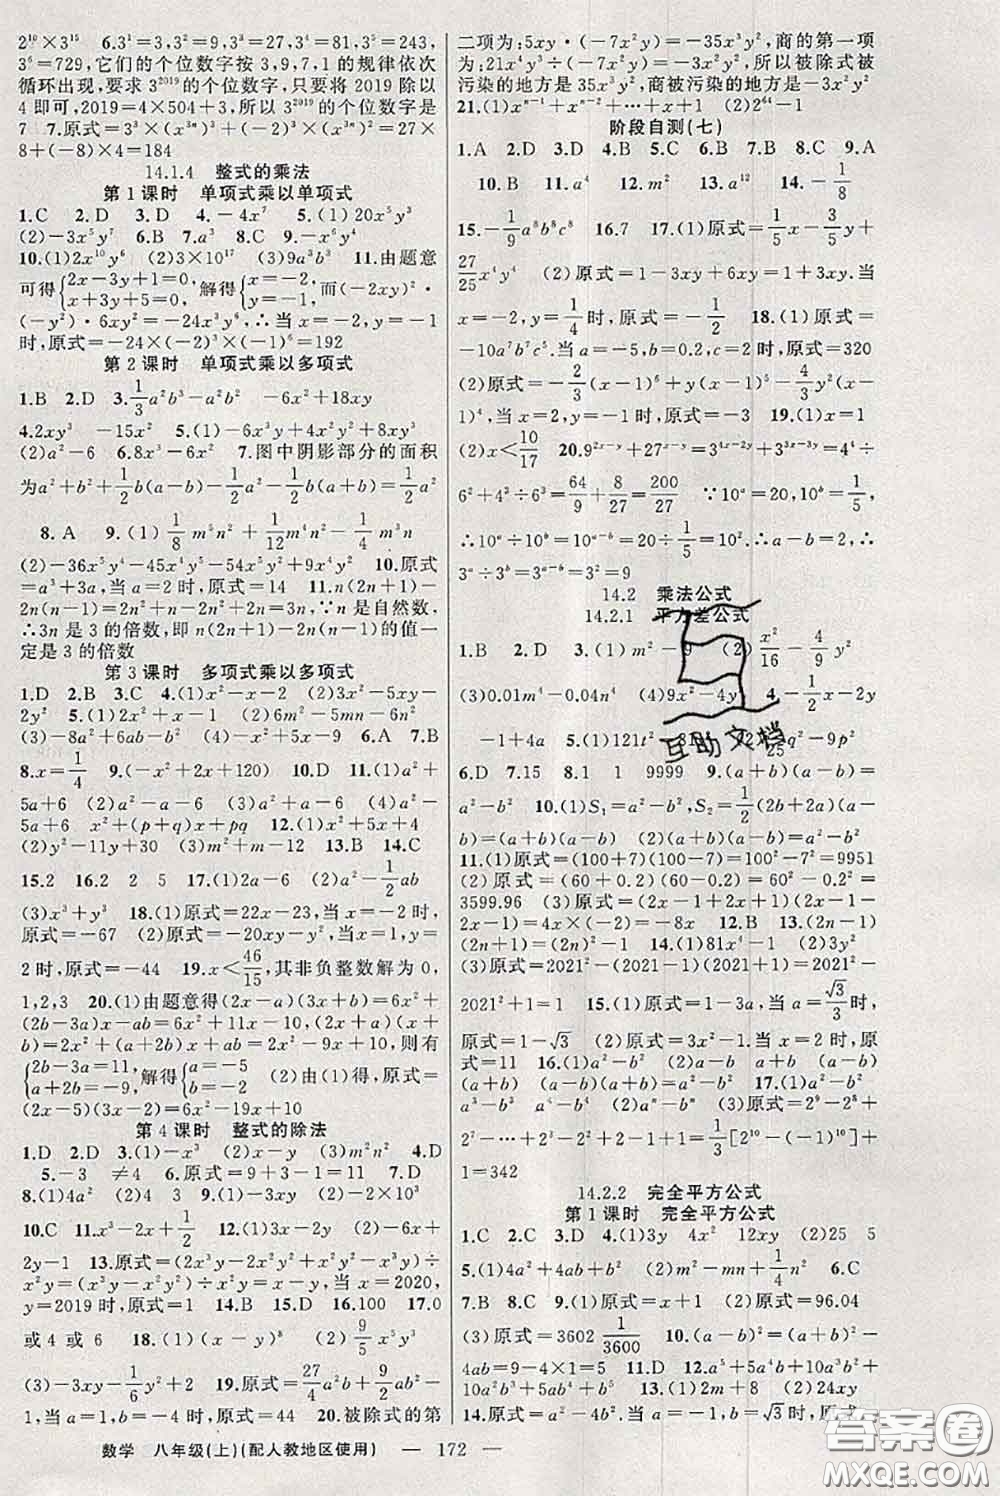 2¹⁰×3¹⁵　6.3¹=3,3²=9,3³=27,3⁴=81,3⁵=243,
3⁶=729,它们的个位数字按 3,9,7,1 的规律依次
循环出现,要求 3²⁰¹⁹ 的个位数字,只要将 2019 除以
4 即可,2019=4×504+3,所以 3²⁰¹⁹ 的个位数字是
7　7.原式=3³×(x³ⁿ)²+(-2)³×(x³ⁿ)²=27×
8+(-8)×4=184
14.1.4　整式的乘法
第 1 课时　单项式乘以单项式
1.C　2.D　3.D　4.-4x⁷　5.(1)20x⁵y³
(2)-3x⁵y⁷　6.B　7.a³　8.C　9.-x⁶y⁴
10.(1)2x¹⁰y⁶　(2)3×10¹⁷　(3)9a³b³　11.由题意
可得{2x-3y+1=0, x+3y+5=0, 解得{x=-2, y=-1, 而(-2xy)·
(-y²)·6xy²=-24x³y⁶,∴当 x=-2,y=-1
时,原式=-24×(-2)³×(-1)⁶=192
第 2 课时　单项式乘以多项式
1.B　2.D　3.1/3a²b³-a²b²　-6x²+18xy
4.2xy³　-15x²　5.(1)6x³y+4x²y²+8xy³
(2)a²-6　6.8x³-6x²　7.图中阴影部分的面积
为a²+b²+1/2b(a-b)-1/2a²-1/2b(a+b)=1/2a²
8.A　9.(1)1/8m⁵n²+1/12m⁴n²-1/4m³n
(2)-36x⁵y⁴-45x⁴y⁵-54x⁵y⁵　10.原式
=a³+3a+1,当 a=2 时,原式=14　11.n(2n+1)-
2n(n-1)=2n²+n-2n²+2n=3n,∵n 是自然数,
∴3n 是 3 的倍数,即 n(2n+1)-2n(n-1)的值一
定是 3 的倍数
第 3 课时　多项式乘以多项式
1.D　2.B　3.C　4.(1)x²-x-2　(2)3x²-5xy-
2y²　5.(1)2x²+x-1　(2)6m²-5mn-6n²
(3)-8a²+6ab-b²　(4)-x²+5x-6　6.A　7.B
8.x=1/4　9.(-x²+2x+120)　10.D　11.(1)a²+
5a+6　(2)a²+a-6　(3)a²-a-6　(4)a²-
5a+6　x²+(p+q)x+pq　12.(1)x²+5x+4
(2)y²-11y+30　(3)m²+m-12　13.B　14.C
15.2　16.2　2　5　17.(1)2a-6　(2)a²-1/2ab
(3)x³+y³　18.(1)原式=22x-23,当 x=-2 时,
原式=-67　(2)原式=-20xy-y²,当 x=1,y=
2 时,原式=-44　19.x<46/15,其非负整数解为 0,
1,2,3　20.(1)由题意得(2x-a)(3x+b)=6x²+
(2b-3a)x-ab=6x²+11x-10,(2x+a)(x+
b)=2x²+(a+2b)x+ab=2x²-9x+10,则有
{2b-3a=11, a+2b=-9, 解得{a=-5, b=-2　(2)由(1)得,原式=
(2x-5)(3x-2)=6x²-19x+10
第 4 课时　整式的除法
1.D　2.D　3.(1)-x³　(2)x-y　(3)m²n²　4.D
5.-3　≠4　6.原式=9+3-1=11　7.D
8.(1)4a²　(2)4　3　9.(1)-3xy　(2)-2×10³
10.C　11.x³-2x+1/2　12.(1)3x-2y　(2)-6x+
2y-1　13.原式=(2x³y-2x²y²+x²y²-x³y)÷
x²y=(x³y-x²y²)÷x²y=x-y,当 x=2020,
y=2019 时,原式=1　14.B　15.D　16.100　17.0
或 4 或 6　18.(1)(x-y)⁸　(2)9/5x⁵y³
(3)-3xy-1/6y²+2　19.原式=27/4a²b+9/4ab²-
1,当 a=1,b=-4 时,原式=44　20.被除式的第
二项为:5xy·(-7x²y)=-35x³y²,商的第一项
为:21x⁴y³÷(-7x²y)=-3x²y²,所以被除式被
污染的地方是 35x³y²,商被污染的地方是-3x²y²
21.(1)xⁿ⁻¹+xⁿ⁻²+…+x+1　(2)2⁶⁴-1
阶段自测(七)
1.A　2.D　3.D　4.B　5.C　6.B　7.C　8.C　9.A
10.B　11.a⁴　12.m²　13.a¹²　14.-1/8
15.-1/9a⁸b⁸c⁸　16.7　17.(1)原式=1/5x-3/5y+
27/25x⁴y⁴　(2)原式=1-3xy+6xy=1+3xy.当
x=-2,y=1/4时,原式=-1/2　18.(1)原式=
-10a⁷b⁷c⁵.当 a=-5,b=0.2,c=2 时,原式=320
(2)原式=-2/3(x-1)⁶+(x-1)⁶y-4/3y²(x-
1)⁴,当 x=2,y=-1 时,原式=-3　19.(1)x=1
(2)x<10/17　20.9²ˣ⁻ʸ+27ˣ⁻ʸ=3⁴ˣ⁻²ʸ+3³ˣ⁻³ʸ=4⁴÷
6²+4³÷6³=64/9+8/27=200/27　∵10ᵃ=20,10ᵇ=1/5,
∴10ᵃ÷10ᵇ=10ᵃ⁻ᵇ=20÷1/5=10².∴a-b=2,∴
3ᵃ÷3ᵇ=3ᵃ⁻ᵇ=3²=9
14.2　乘法公式
14.2.1　平方差公式
1.B　2.D　3.(1)m²-9　(2)x²/16-4/9y²
(3)0.01m⁴-0.04n⁴　(4)9x²-4y　4.-1/2x-2y
-1+4a　5.(1)121t²　81
6.D　7.15　8.1　1　9999　9.(a+b)(a-b)=
a²-b²　10.(1)S₁=a²-b²,S₂=1/2(2b+2a)(a-
b)=(a+b)(a-b)　(2)(a+b)(a-b)=a²-b²
11.(1)原式=(100+7)(100-7)=100²-7²=9951
(2)原式=(60+0.2)(60-0.2)=60²-0.2²=
3599.96　(3)原式=(2x-1+2x+1)(2x-1-
2x-1)=4x×(-2)=-8x　12.B　13.(2n-1)
(2n+1)=(2n)²-1　14.(1)81x⁴-1　(2)3y²
(3)原式=2021²-(2021-1)(2021+1)=2021²-
2021²+1=1　15.(1)原式=1-3a,当 a=√3/3时,
原式=1-√3　(2)原式=3x²-1.当 x=2 时,
原式=11　16.(1)a²-b²　(2)a-b　a+b　(a-b)
(a+b)　a²-b²　(3)a²-b²　17.(1)a²-b²
a³-b³　a⁴-b⁴　(2)aⁿ-bⁿ　(3)原式=2⁹-2⁸+
2⁷-…+2³-2²+2-1+1=1/3[2¹⁰-(-1)¹⁰]+
1=342
14.2.2　完全平方公式
第 1 课时　完全平方公式
1.C　2.C　3.D　4.(1)3y　4x²　12xy　(2)25　5
5.(1)4a²+4ab+b²　(2)m²-mn+1/4n²　6.C
7.B　8.C　9.(1)原式=x+1　(2)原式=96.04
(3)原式=3602 1/3600　10.(a-b)²=(a+b)²-
4ab=9-4×1=5　11.D　12.a⁵+5a⁴b+10a³b²
+10a²b³+5ab⁴+b⁵　13.(1)2m+8　(2)24xy
14.原式=a²+b²,当 a=-1,b=√3时,原式=4
数学　八年级(上)(配人教地区使用)　— 172 —
互助文档
答案圈
MXQE.COM